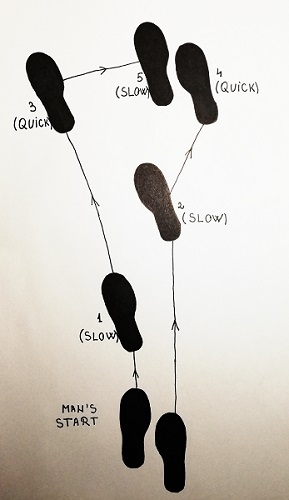 5
(SLOW)
4
(QUICK)
3
(QUICK)
2
(SLOW)
1
(SLOW)
MAN'S
START